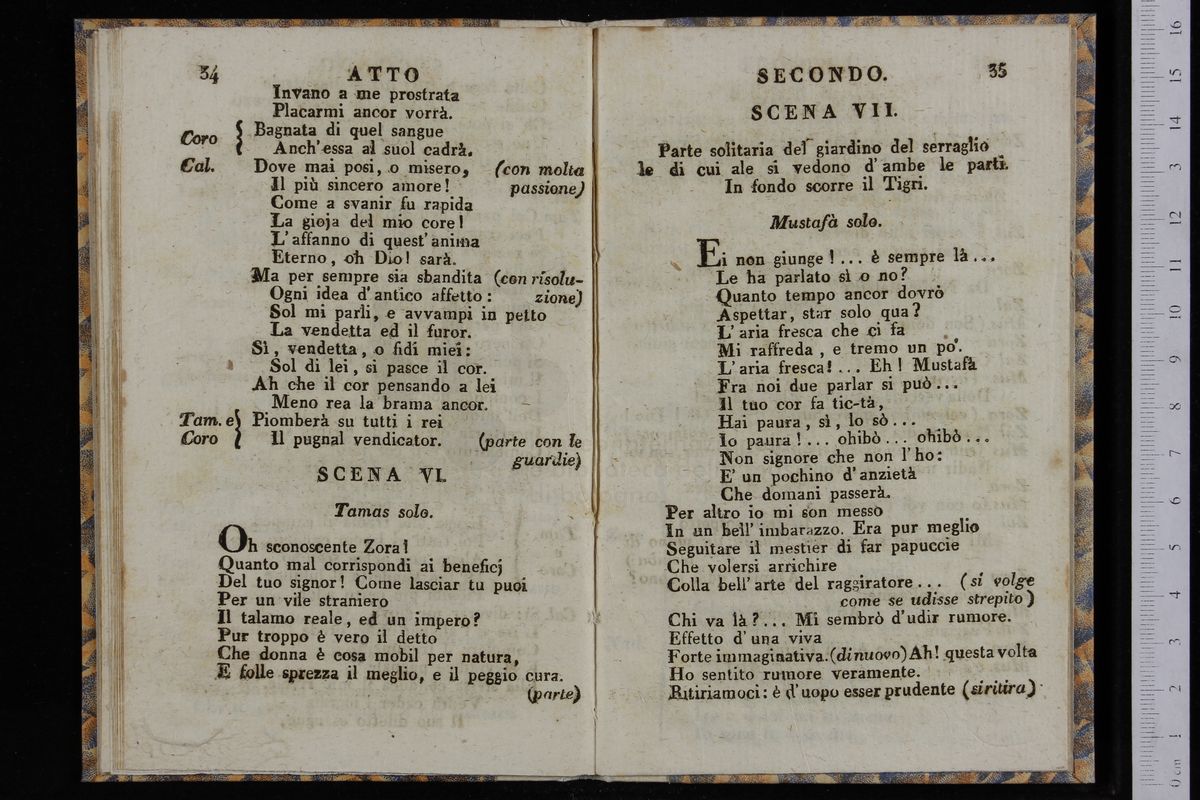 34 ATTO
Invano a me prostrata
Placarmi ancor vorrà.
Coro { Bagnata di quel sangue
Anch'essa al suol cadrà.
Cal. Dove mai posi, o misero, (con molta
Il più sincero amore! passione)
Come a svanir fu rapida
La gioja del mio core!
L'affanno di quest'anima
Eterno, oh Dio! sarà.
Ma per sempre sia sbandita (con risolu-
Ogni idea d'antico affetto: zione)
Sol mi parli, e avvampi in petto
La vendetta ed il furor.
Sì, vendetta, o fidi miei:
Sol di lei, si pasce il cor.
Ah che il cor pensando a lei
Meno rea la brama ancor.
Tam. e { Piomberà su tutti i rei
Coro Il pugnal vendicator. (parte con le
guardie)
SCENA VI.
Tamas solo.
Oh sconoscente Zora!
Quanto mal corrispondi ai beneficj
Del tuo signor! Come lasciar tu puoi
Per un vile straniero
Il talamo reale, ed un impero?
Pur troppo è vero il detto
Che donna è cosa mobil per natura,
E folle sprezza il meglio, e il peggio cura.
(parte)
SECONDO. 35
SCENA VII.
Parte solitaria del giardino del serraglio
le di cui ale si vedono d'ambe le parti.
In fondo scorre il Tigri.
Mustafà solo.
Ei non giunge!... è sempre là...
Le ha parlato sì o no?
Quanto tempo ancor dovrò
Aspettar, star solo qua?
L'aria fresca che ci fa
Mi raffreda, e tremo un po'.
L'aria fresca!... Eh! Mustafà
Fra noi due parlar si può...
Il tuo cor fa tic-tà,
Hai paura, sì, lo sò...
Io paura!... ohibò... ohibò...
Non signore che non l'ho:
E' un pochino d'anzietà
Che domani passerà.
Per altro io mi son messo
In un bell'imbarazzo. Era pur meglio
Seguitare il mestier di far papuccie
Che volersi arrichire
Colla bell'arte del raggiratore... (si volge
come se udisse strepito)
Chi va là?... Mi sembrò d'udir rumore.
Effetto d'una viva
Forte immaginativa.(di nuovo) Ah! questa volta
Ho sentito rumore veramente.
Ritiriamoci: è d'uopo esser prudente (si ritira)
0 cm 1 2 3 4 5 6 7 8 9 10 11 12 13 14 15 16